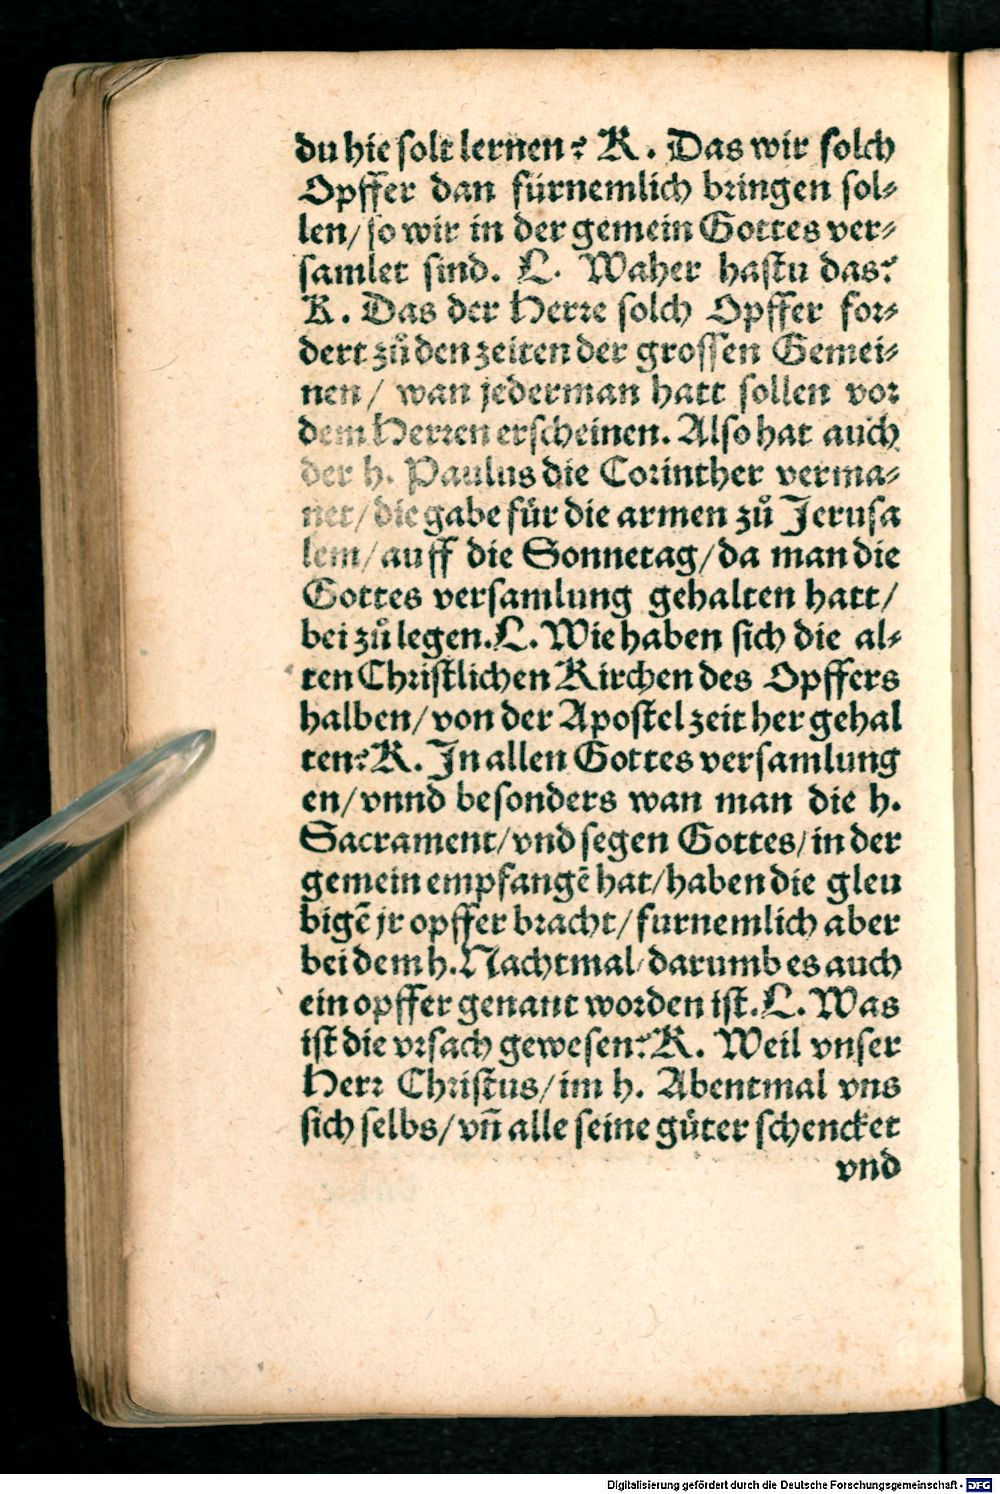 du hie solt lernen? K. Das wir solch
Opffer dan fürnemlich bringen sol⸗
len/ so wir in der gemein Gottes ver⸗
samlet sind. L. Waher hastu das?
K. Das der Herre solch Opffer for⸗
dert zů den zeiten der grossen Gemei⸗
nen/ wan jederman hatt sollen vor
dem Herren erscheinen. Also hat auch
der h. Paulus die Corinther verma⸗
net/ die gabe für die armen zů Jerusa
lem/ auff die Sonnetag/ da man die
Gottes versamlung gehalten hatt/
bei zů legen. L. Wie haben sich die al⸗
ten Christlichen Kirchen des Opffers
halben/ von der Apostel zeit her gehal
ten? K. In allen Gottes versamlung
en/ vnnd besonders wan man die h.
Sacrament/ vnd segen Gottes/ in der
gemein empfangē hat/ haben die gleu
bigē jr opffer bracht/ furnemlich aber
bei dem h. Nachtmal/ darumb es auch
ein opffer genant worden ist. L. Was
ist die vrsach gewesen? K. Weil vnser
Herr Christus/ im h. Abentmal vns
sich selbs/ vñ alle seine gůter schencket
vnd
Digitalisierung gefördert durch die Deutsche Forschungsgemeinschaft - DFG